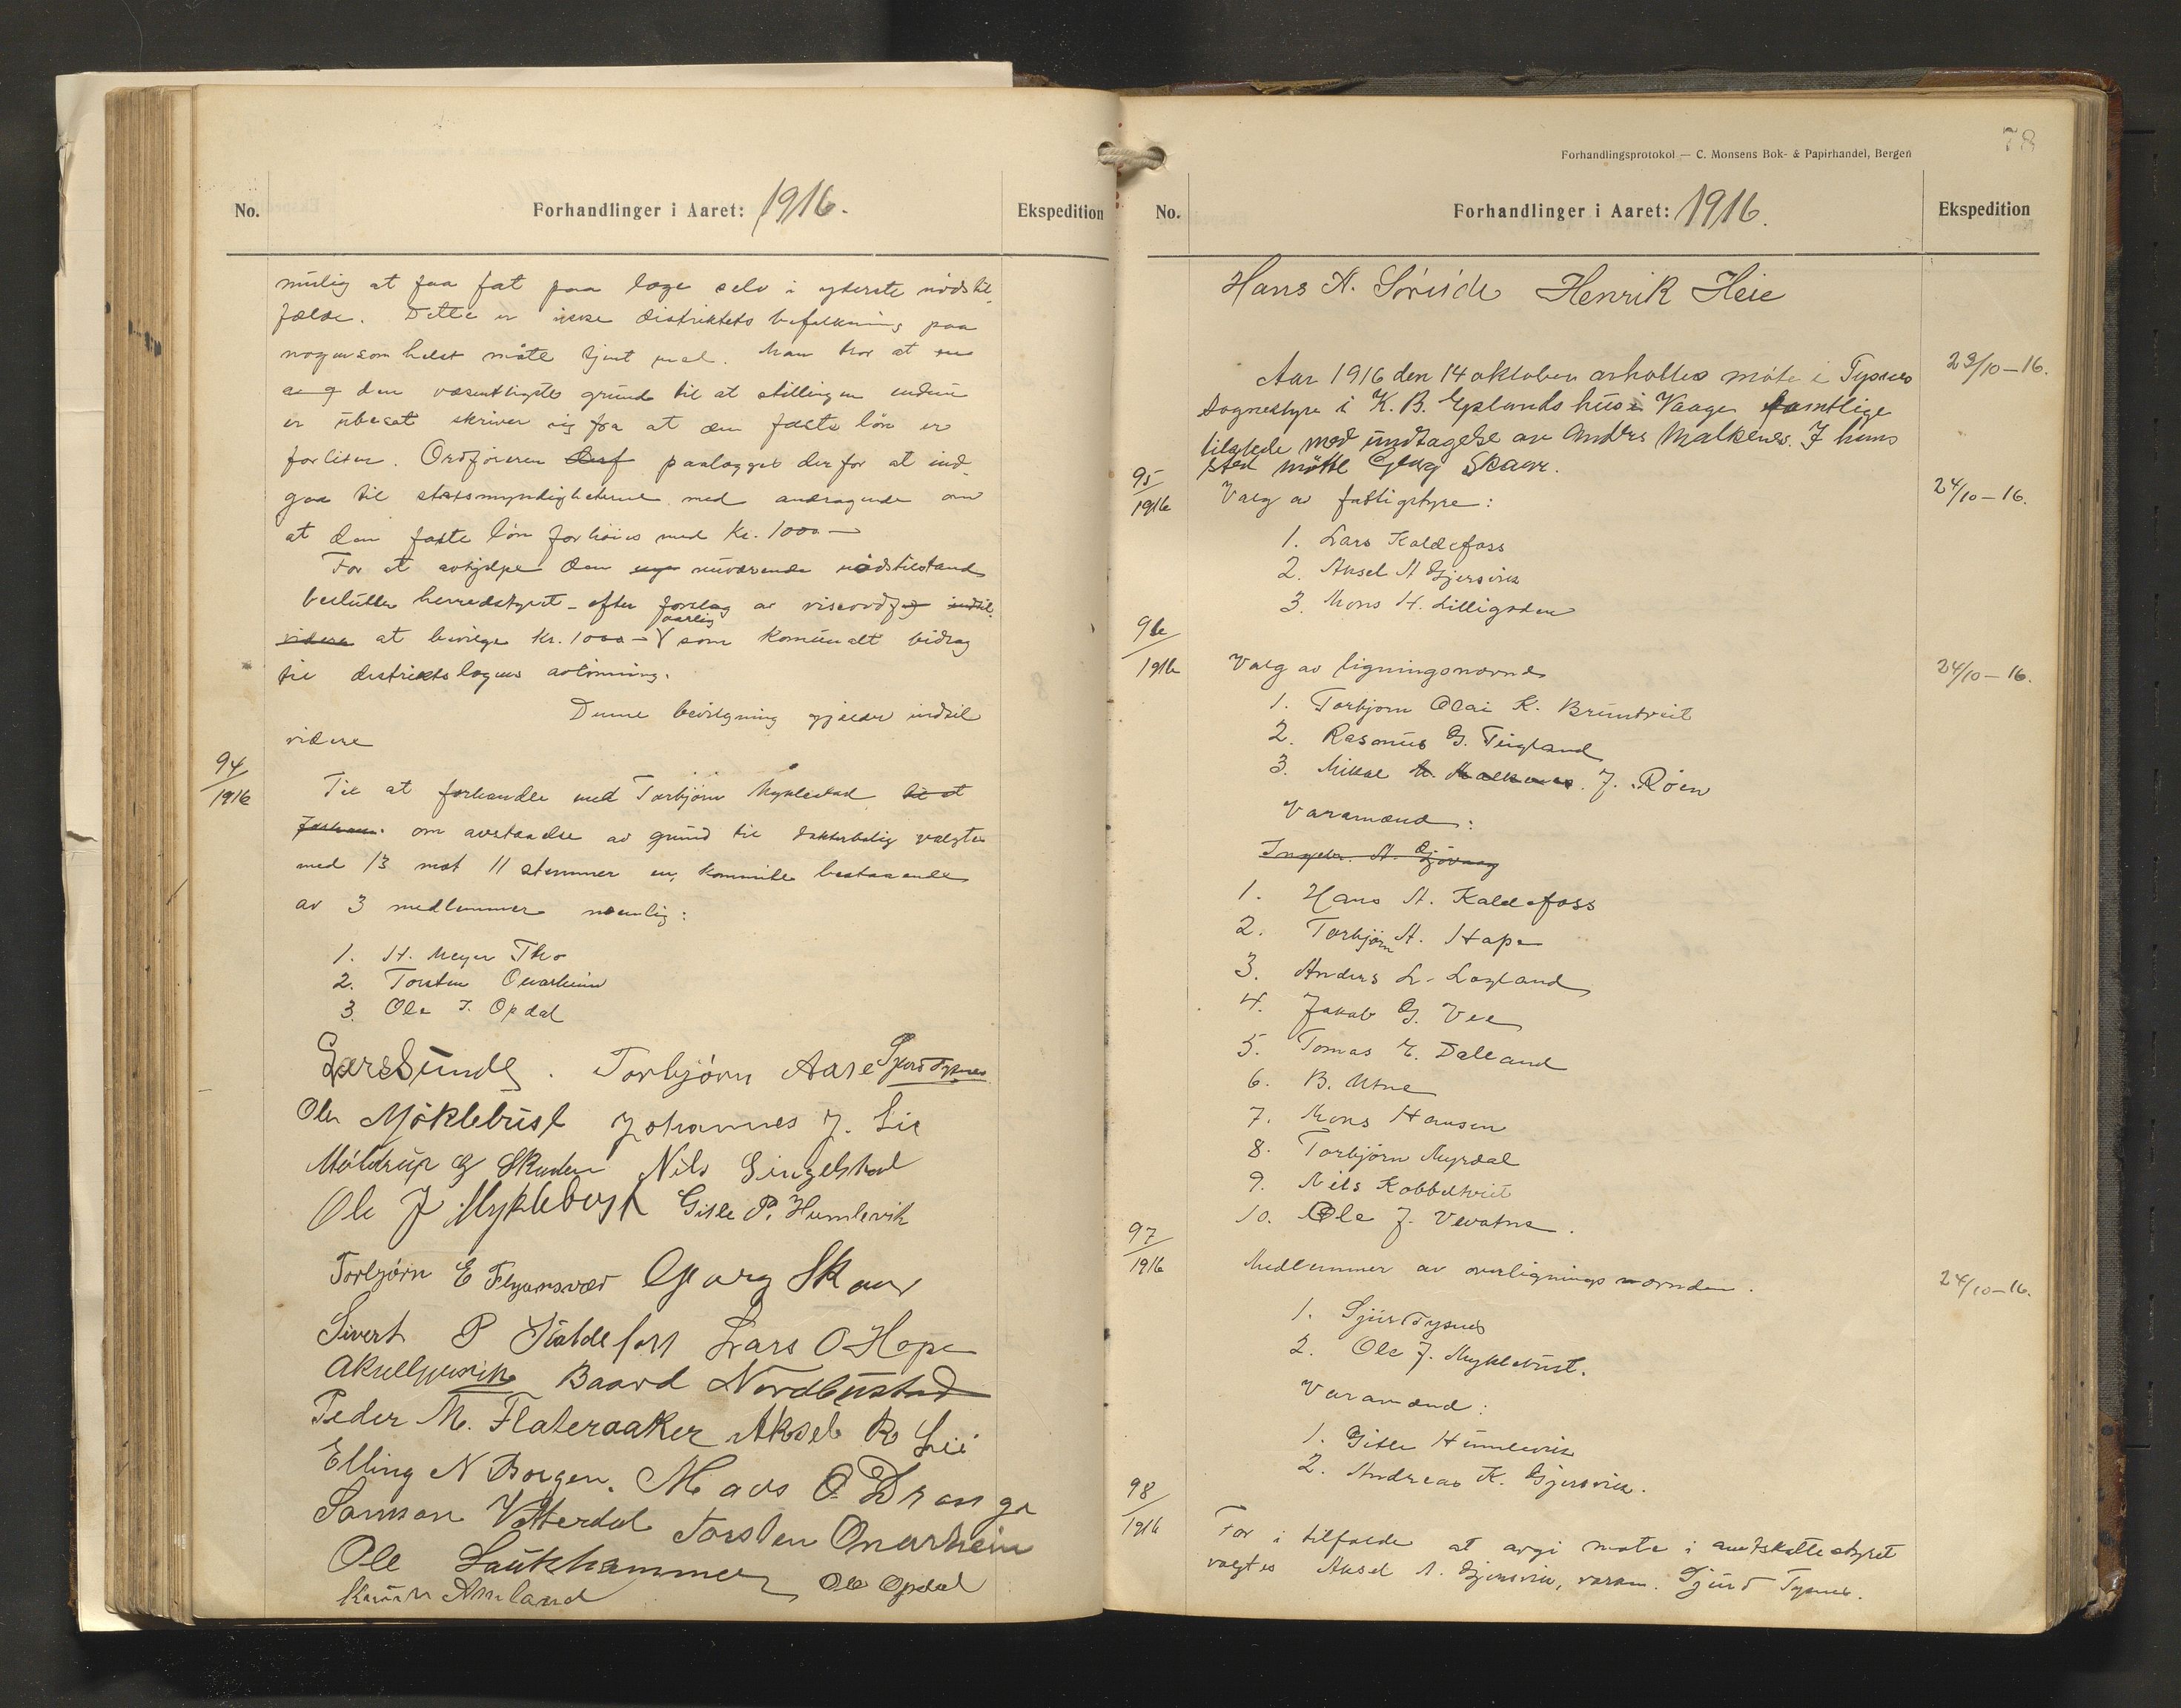 No.
Forhandlinger i Aaret: 1916.
Ekspedition
mulig at faa fat paa læge selv i yderste nødstil-
fælde. Dette er ikke distriktets befolkning paa
nogensomhelst måte tjent med. Man tror at en
av den væsentligste grund til at stillingen endnu
er ubesat skriver sig fra at den faste løn er
for liten. Ordføreren paalægges derfor at ind-
gaa til statsmyndigheterne med andragende om
at den faste løn forhøies med Kr. 1000 –
For at avhjelpe den nuværende nødstilstand
beslutter herredstyret – efter forslag av viseordf
at bevilge Kr. 1000 – aarlig som komunalt bidrag
til distriktslægens avlønning.
Denne bevilgning gjælder indtil
videre
94/1916
Til at forhandle med Torbjörn Myklestad
om avstaaelse av grund til doktorbolig valgtes
med 13 mot 11 stemmer en kommite bestaaende
av 3 medlemmer nemlig:
1. H. Meyer Tho
2. Torsten Onarheim
3. Ole J. Opdal
Lars Sunde. Torbjørn Aase Sjurd Tysnes
Ole Möklebust Johannes J. Lie
Möldrup G Skaden Nils Singelstad
Ole J Myklebust Gitle P. Humlevik
Torbjørn E Flygansvær Georg Skaar
Sivert P Kaldefoss Lars O Hope
Aksel Gjersvik Baard Nordbustad
Peder M. Flateraaker Aksel R Lie
Elling N Borgen. Mads O Drange
Samson Vatterdal Torsten Onarheim
Ole Laukhammer Ole Opdal
Amland
78
Forhandlingsprotokol — C. Monsens Bok- & Papirhandel, Bergen
No.
Forhandlinger i Aaret: 1916.
Ekspedition
Hans A. Søreide Henrik Heie
Aar 1916 den 14 oktober avholdtes møte i Tysnes
23/10–16.
sognestyre i K. B. Eplands hus i Vaage samtlige
tilstede med undtagelse av Anders Malkenes. I hans
sted møtte Georg Skaar.
95/1916
Valg av fattigstyre:
24/10–16.
1. Lars Kaldefoss
2. Aksel A Gjersvik
3. Mons H. Lilligraven
96/1916
Valg av ligningsnævnd
24/10–16.
1. Torbjørn Olai K. Bruntveit
2. Rasmus G. Teigland
3. Mikal M. Malkenes. J. Røen
Varamænd:
1. Hans A. Kaldefoss
2. Torbjørn A. Hope
3. Anders L. Løgland
4. Jakob G. Vee
5. Tomas E. Dalland
6. B. Utne
7. Mons Hansen
8. Torbjørn Myrdal
9. Nils Kobbeltveit
10. Ole J. Vevatne.
97/1916
Medlemmer av overligningsnævnden.
24/10–16.
1. Sjur Tysnes
2. Ole J. Myklebust.
Varamænd:
1. Gitle Humlevik
2. Andreas K. Gjersvik.
98/1916
For i tilfælde at avgi møte i amtskattestyret
valgtes Aksel A. Gjersvik, varam. Sjurd Tysnes.